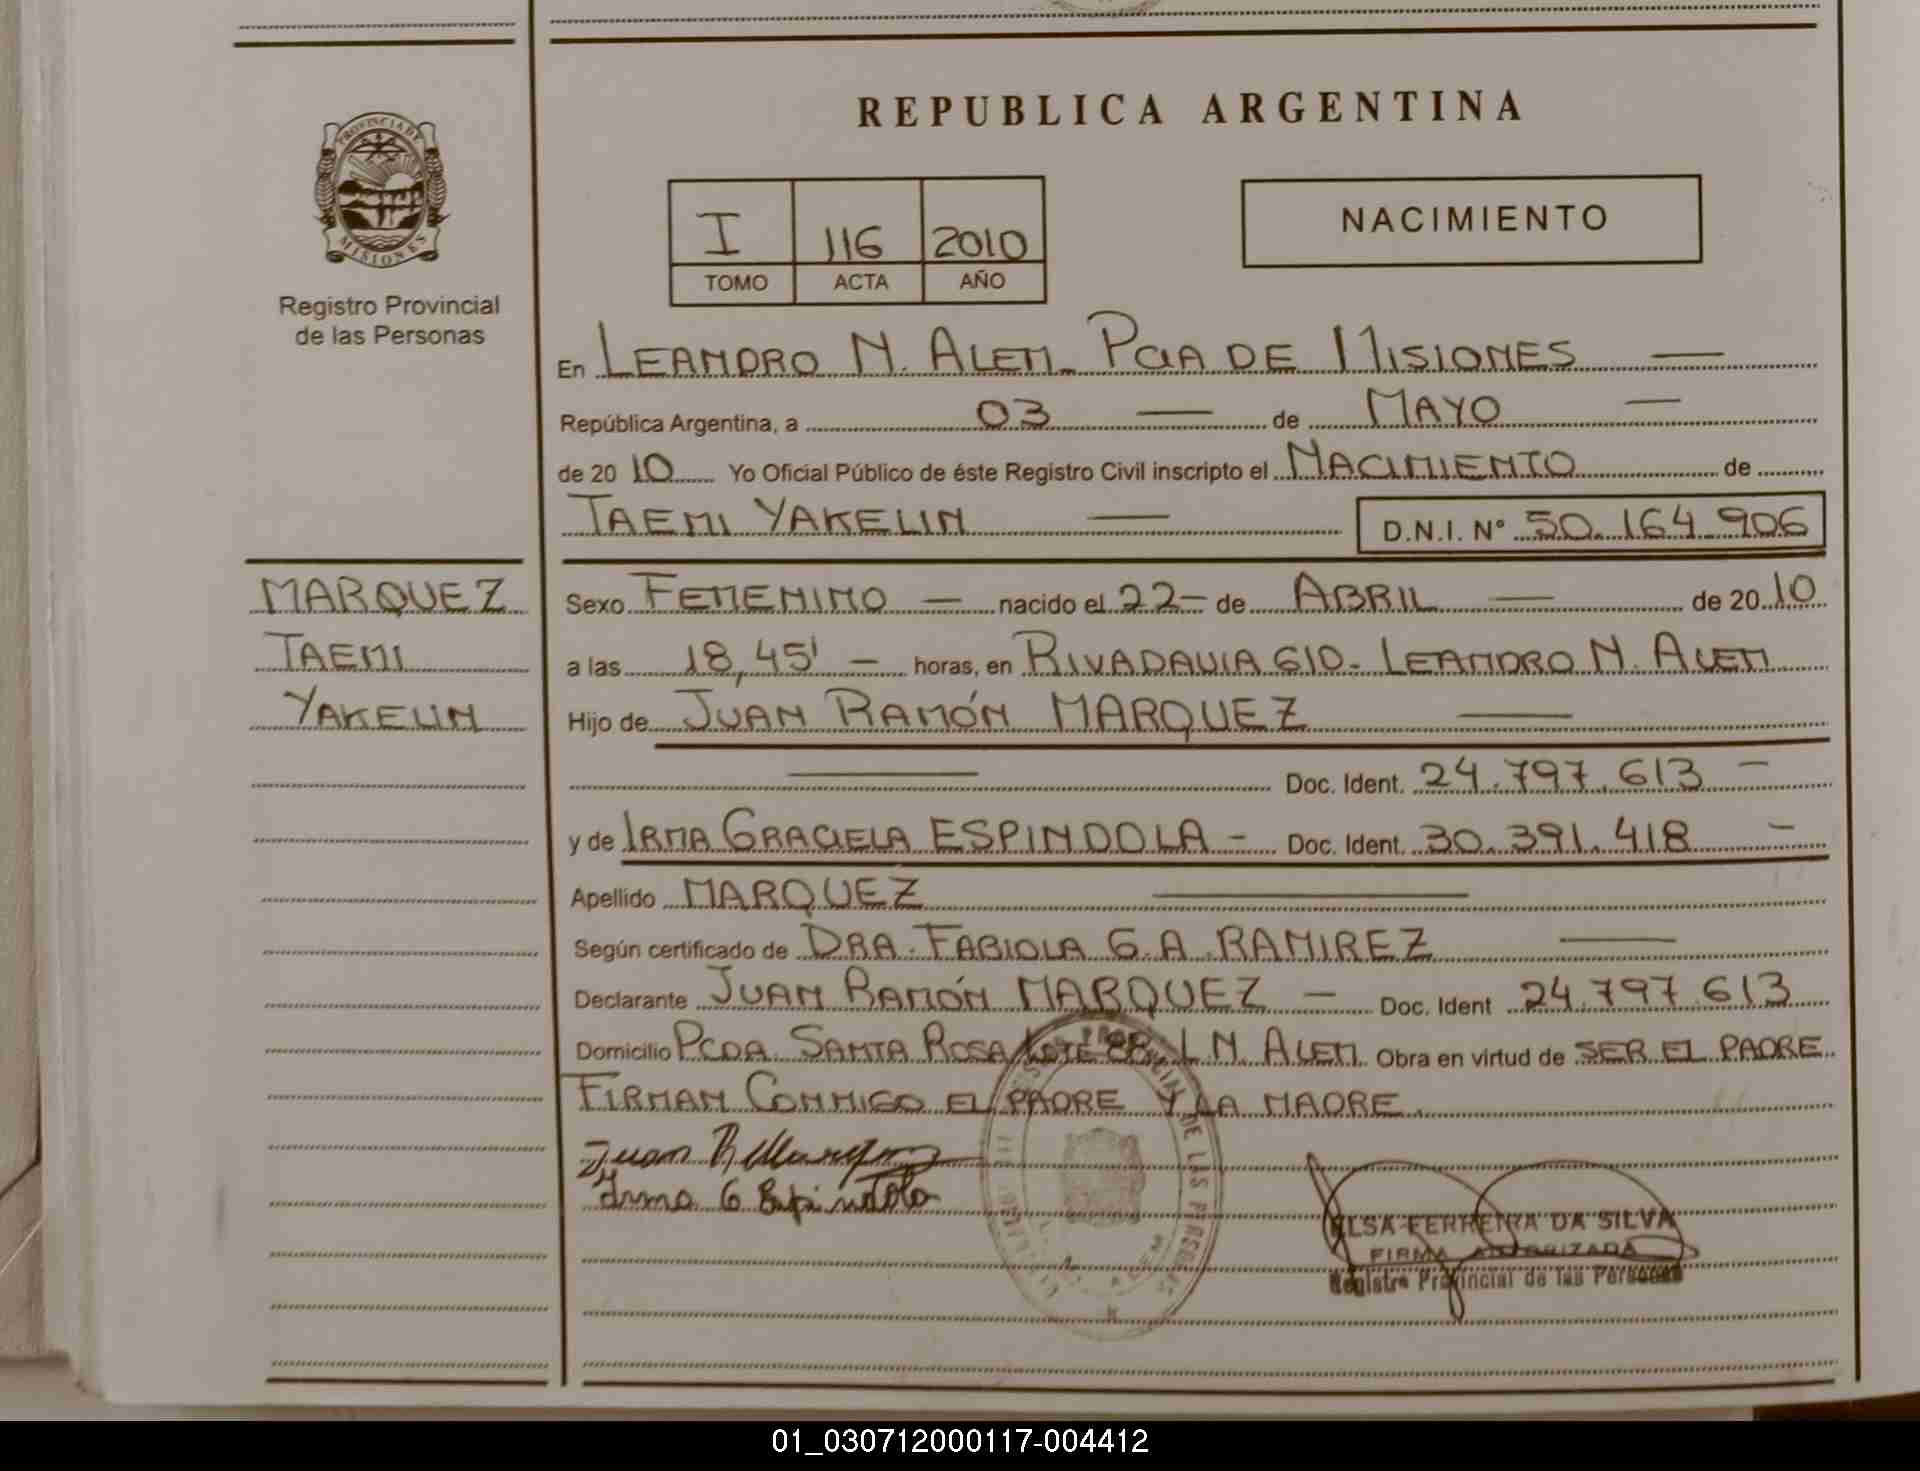 REPUBLICA ARGENTINA
PROVINCIA DE
MISIONES
Registro Provincial
de las Personas
I 116 2010
TOMO ACTA AÑO
NACIMIENTO
En LEANDRO N. ALEM. PCIA DE MISIONES
República Argentina, a 03 de MAYO
de 20 10 Yo Oficial Público de éste Registro Civil inscripto el NACIMIENTO de
TAEMI YAKELIN D.N.I. N° 50.164.906
MARQUEZ
TAEMI
YAKELIN
Sexo FEMENINO nacido el 22 de ABRIL de 20 10
a las 18,45' horas, en RIVADAVIA 610. LEANDRO N. ALEM
Hijo de JUAN RAMÓN MARQUEZ
Doc. Ident. 24.797.613
y de IRMA GRACIELA ESPINDOLA Doc. Ident. 30.391.418
Apellido MARQUEZ
Según certificado de DRA. FABIOLA G.A. RAMIREZ
Declarante JUAN RAMÓN MARQUEZ Doc. Ident 24.797.613
Domicilio PCDA. SANTA ROSA LOTE 88. L.N. ALEM. Obra en virtud de SER EL PADRE.
FIRMAN CONMIGO EL PADRE Y LA MADRE.
Juan R Marquez
Irma G Espindola
PROVINCIAL DE LAS PERSONAS
L. N. ALEM
ELSA FERREIRA DA SILVA
FIRMA AUTORIZADA
Registro Provincial de las Personas
01_030712000117-004412